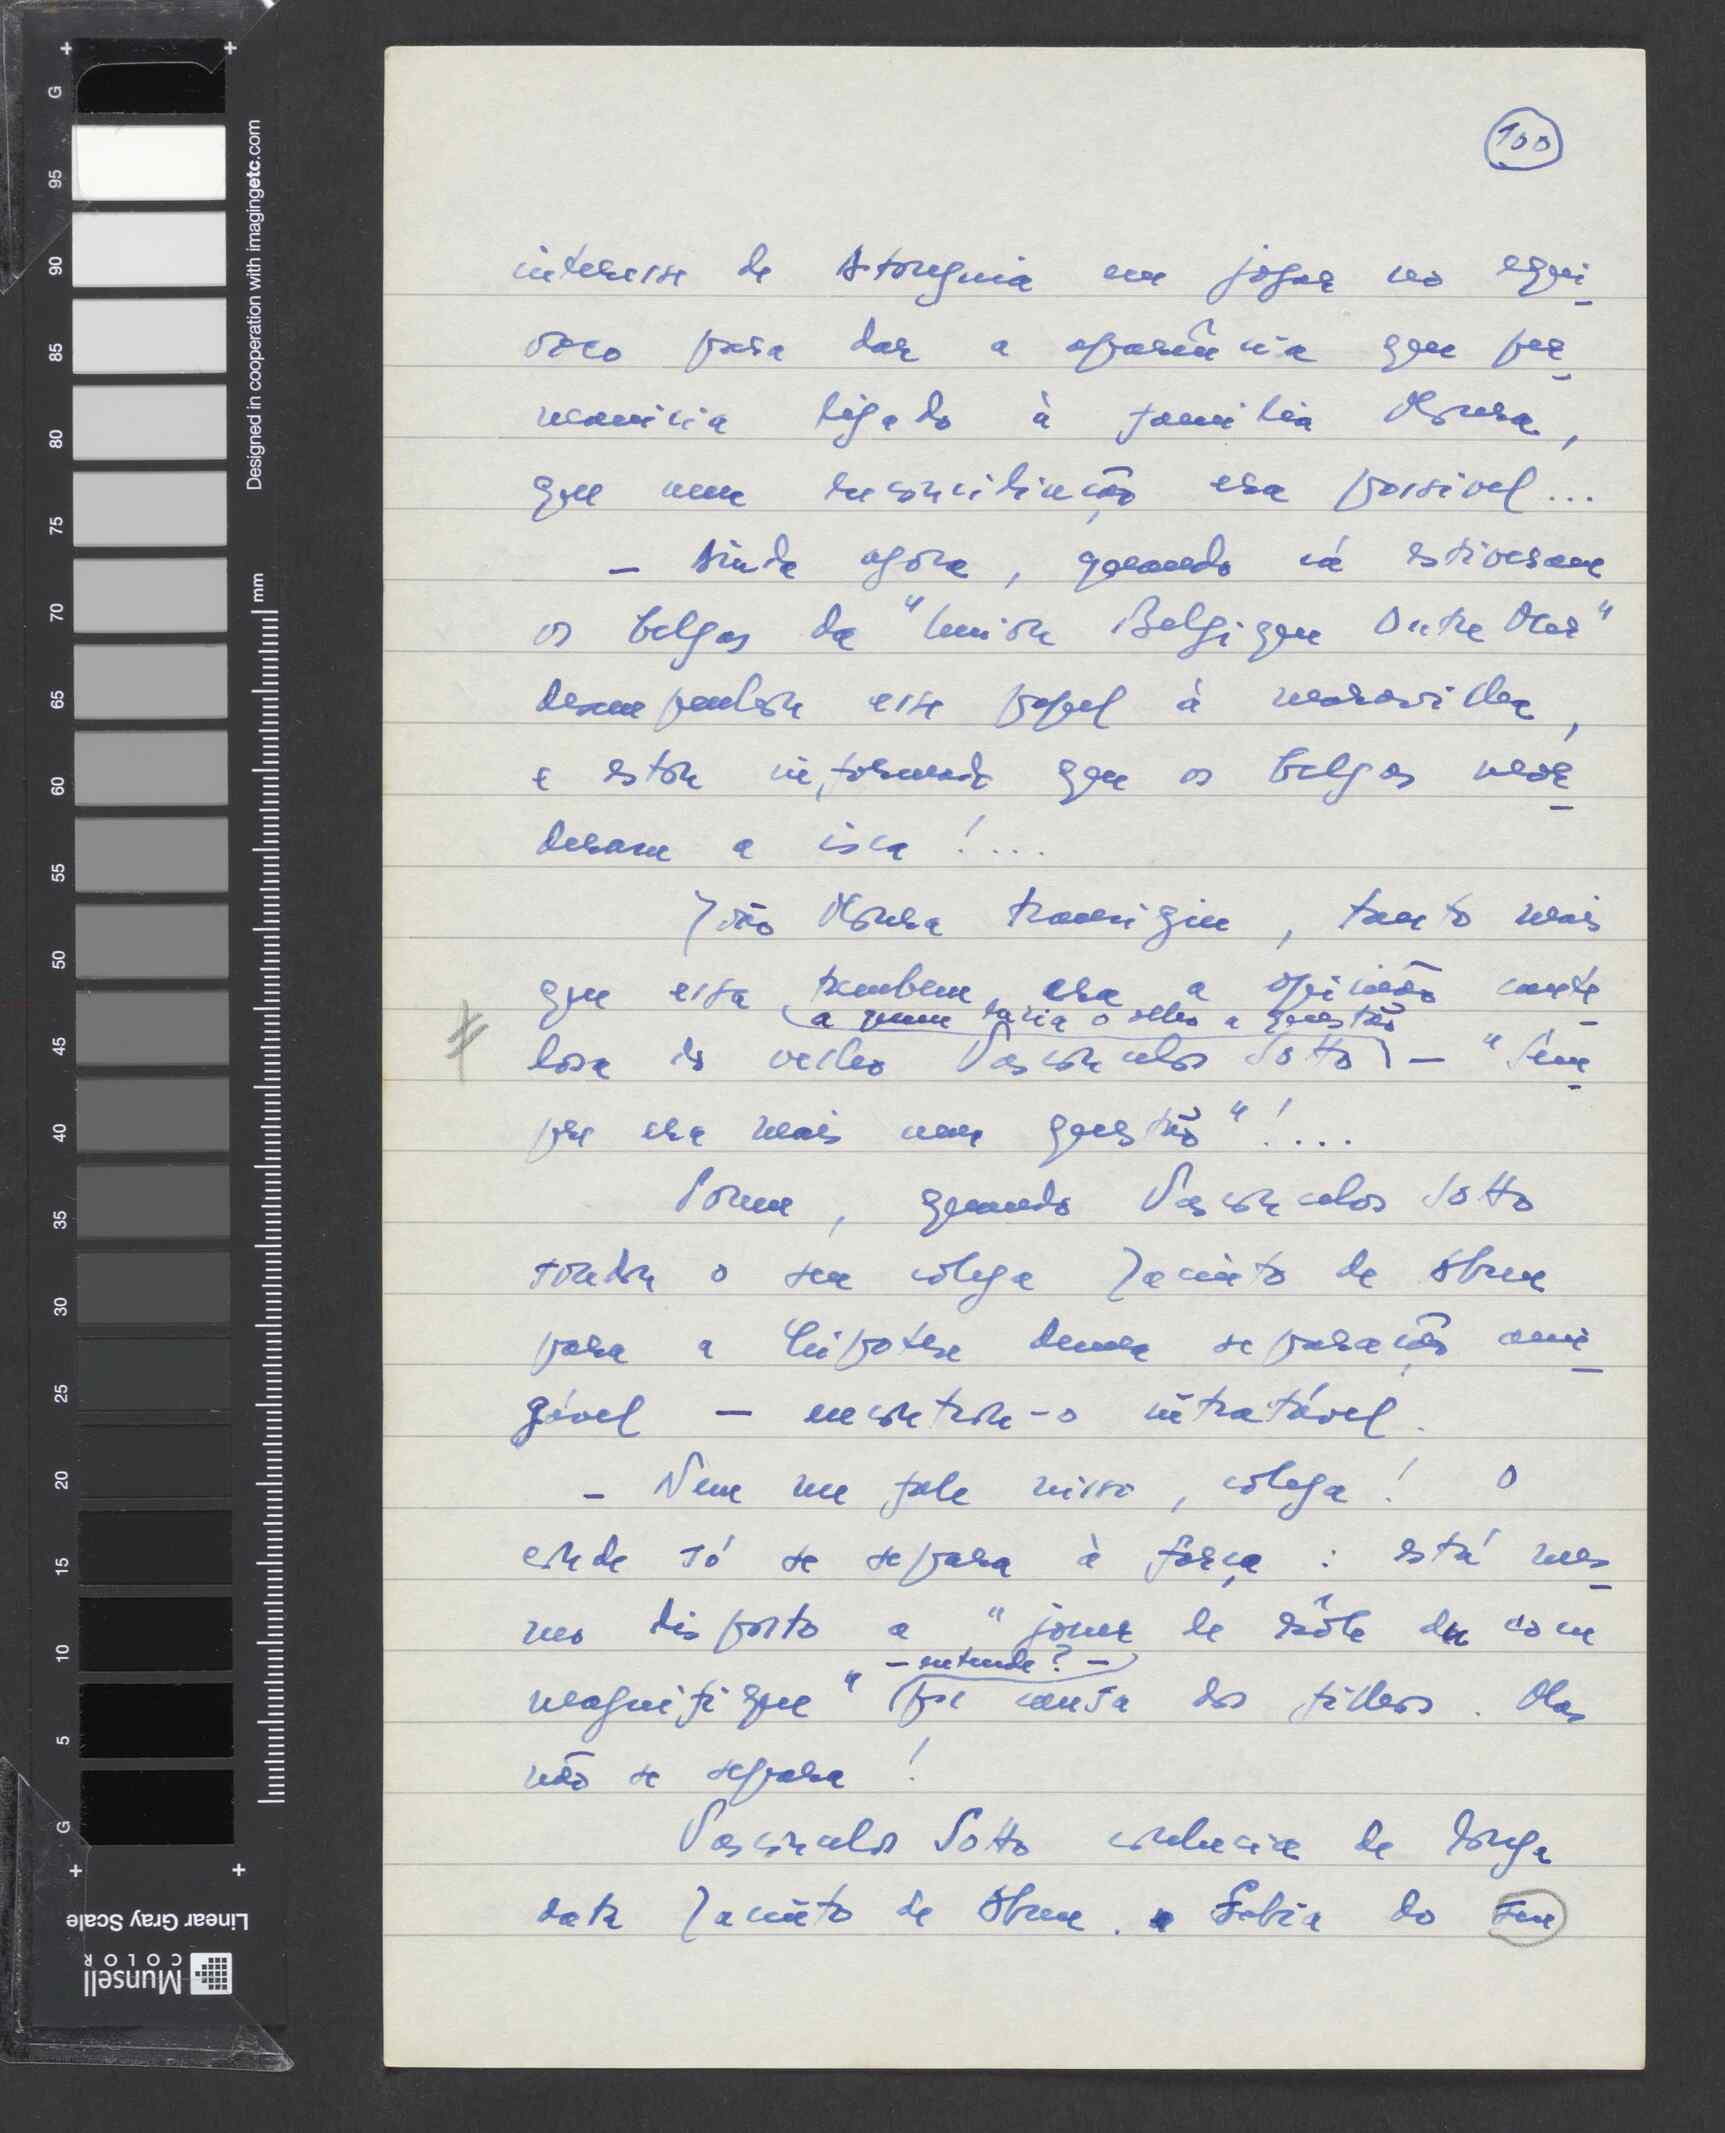 100
interesse de Atouguia em jogar no equí
voco para dar a aparência que per
manecia ligado à familia Moura,
que uma reconciliação era possivel...
– Ainda agora, quando cá estiveram
os belgas da "Union Belgique Outre Mar"
desempenhou esse papel à maravilha,
e estou informado que os belgas mor
deram a isca!...
João Moura transigiu, tanto mais
que essa tambem era a opinião caute
a quem sorria o velho a questão
losa do velho Vasconcelos Sotto – "Sem
pre era mais uma questão"!...
Porem, quando Vasconcelos Sotto
sondou o seu colega Jacinto de Abreu
para a hipotese duma separação ami
gável – encontrou-o intratável.
– Nem me fale nisso, colega! O
conde só se separa à força: está mes
mo disposto a "jouer le rôle du cocu
– entende? –
magnifique" por causa dos filhos. Mas
não se separa!
Vasconcelos Sotto conhecia de longa
data Jacinto de Abreu. Sabia do seu
G
95
90
85
80
75
70
65
60
55
50
45
40
35
30
25
20
15
10
5
G
mm
Designed in cooperation with imagingetc.com
Linear Gray Scale
Munsell
COLOR